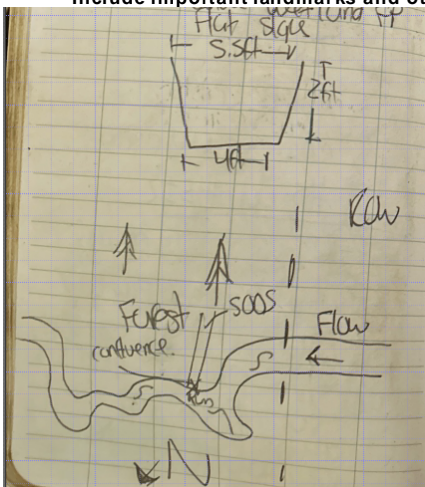 Include important landmarks and
Flat slope
5.5ft
2ft
4ft
ROW
Forest
Flow
confluence.
N